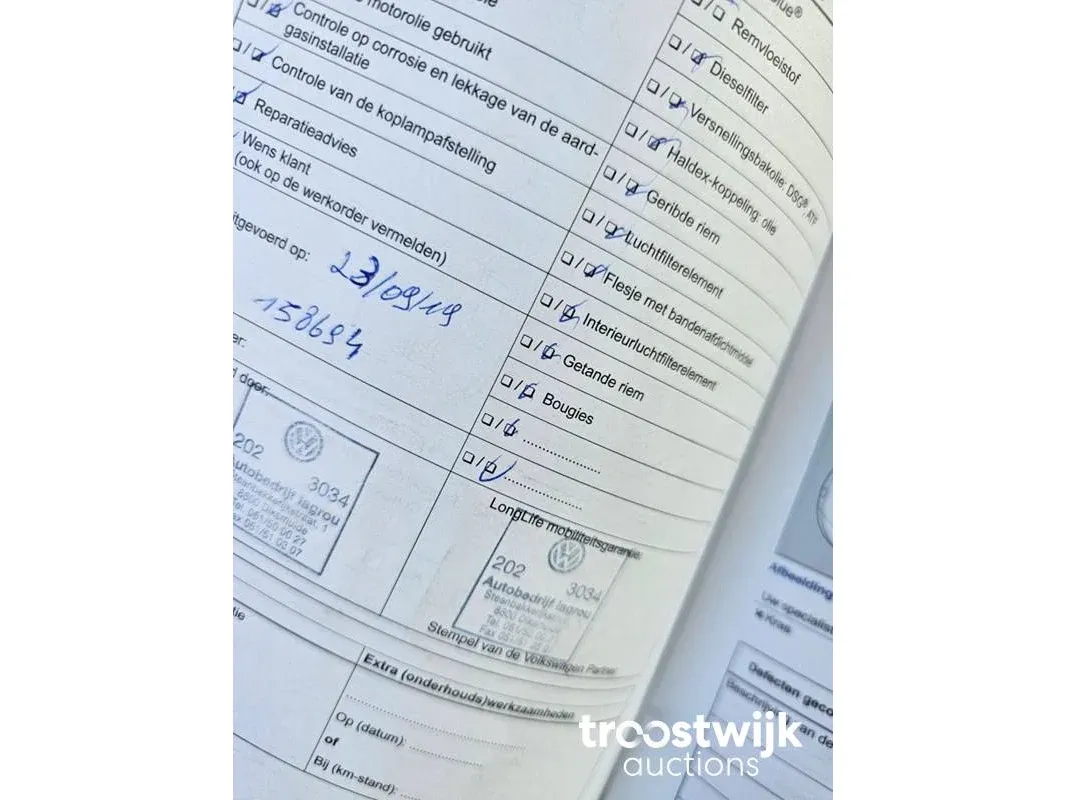 motorolie gebruikt
Controle op corrosie en lekkage van de aard-
gasinstallatie
Controle van de koplampafstelling
Reparatieadvies
Wens klant
(ook op de werkorder vermelden)
op:
23/09/19
158694
door:
202
3034
Autobedrijf
8600 Diksmuide
Tel. 051/50 00 27
Fax 051/51 03 07
Remvloeistof
Dieselfilter
Versnellingsbakolie: DSG®, ATF
Haldex-koppeling: olie
Geribde riem
Luchtfilterelement
Flesje met bandenafdichtmiddel
Interieurluchtfilterelement
Getande riem
Bougies
LongLife mobiliteitsgarantie:
202
3034
Autobedrijf
Stempel van de Volkswagen Partner
Extra (onderhouds)werkzaamheden
Op (datum):
of
Bij (km-stand):
Afbeelding
Uw specialist
Defecten
troostwijk
auctions